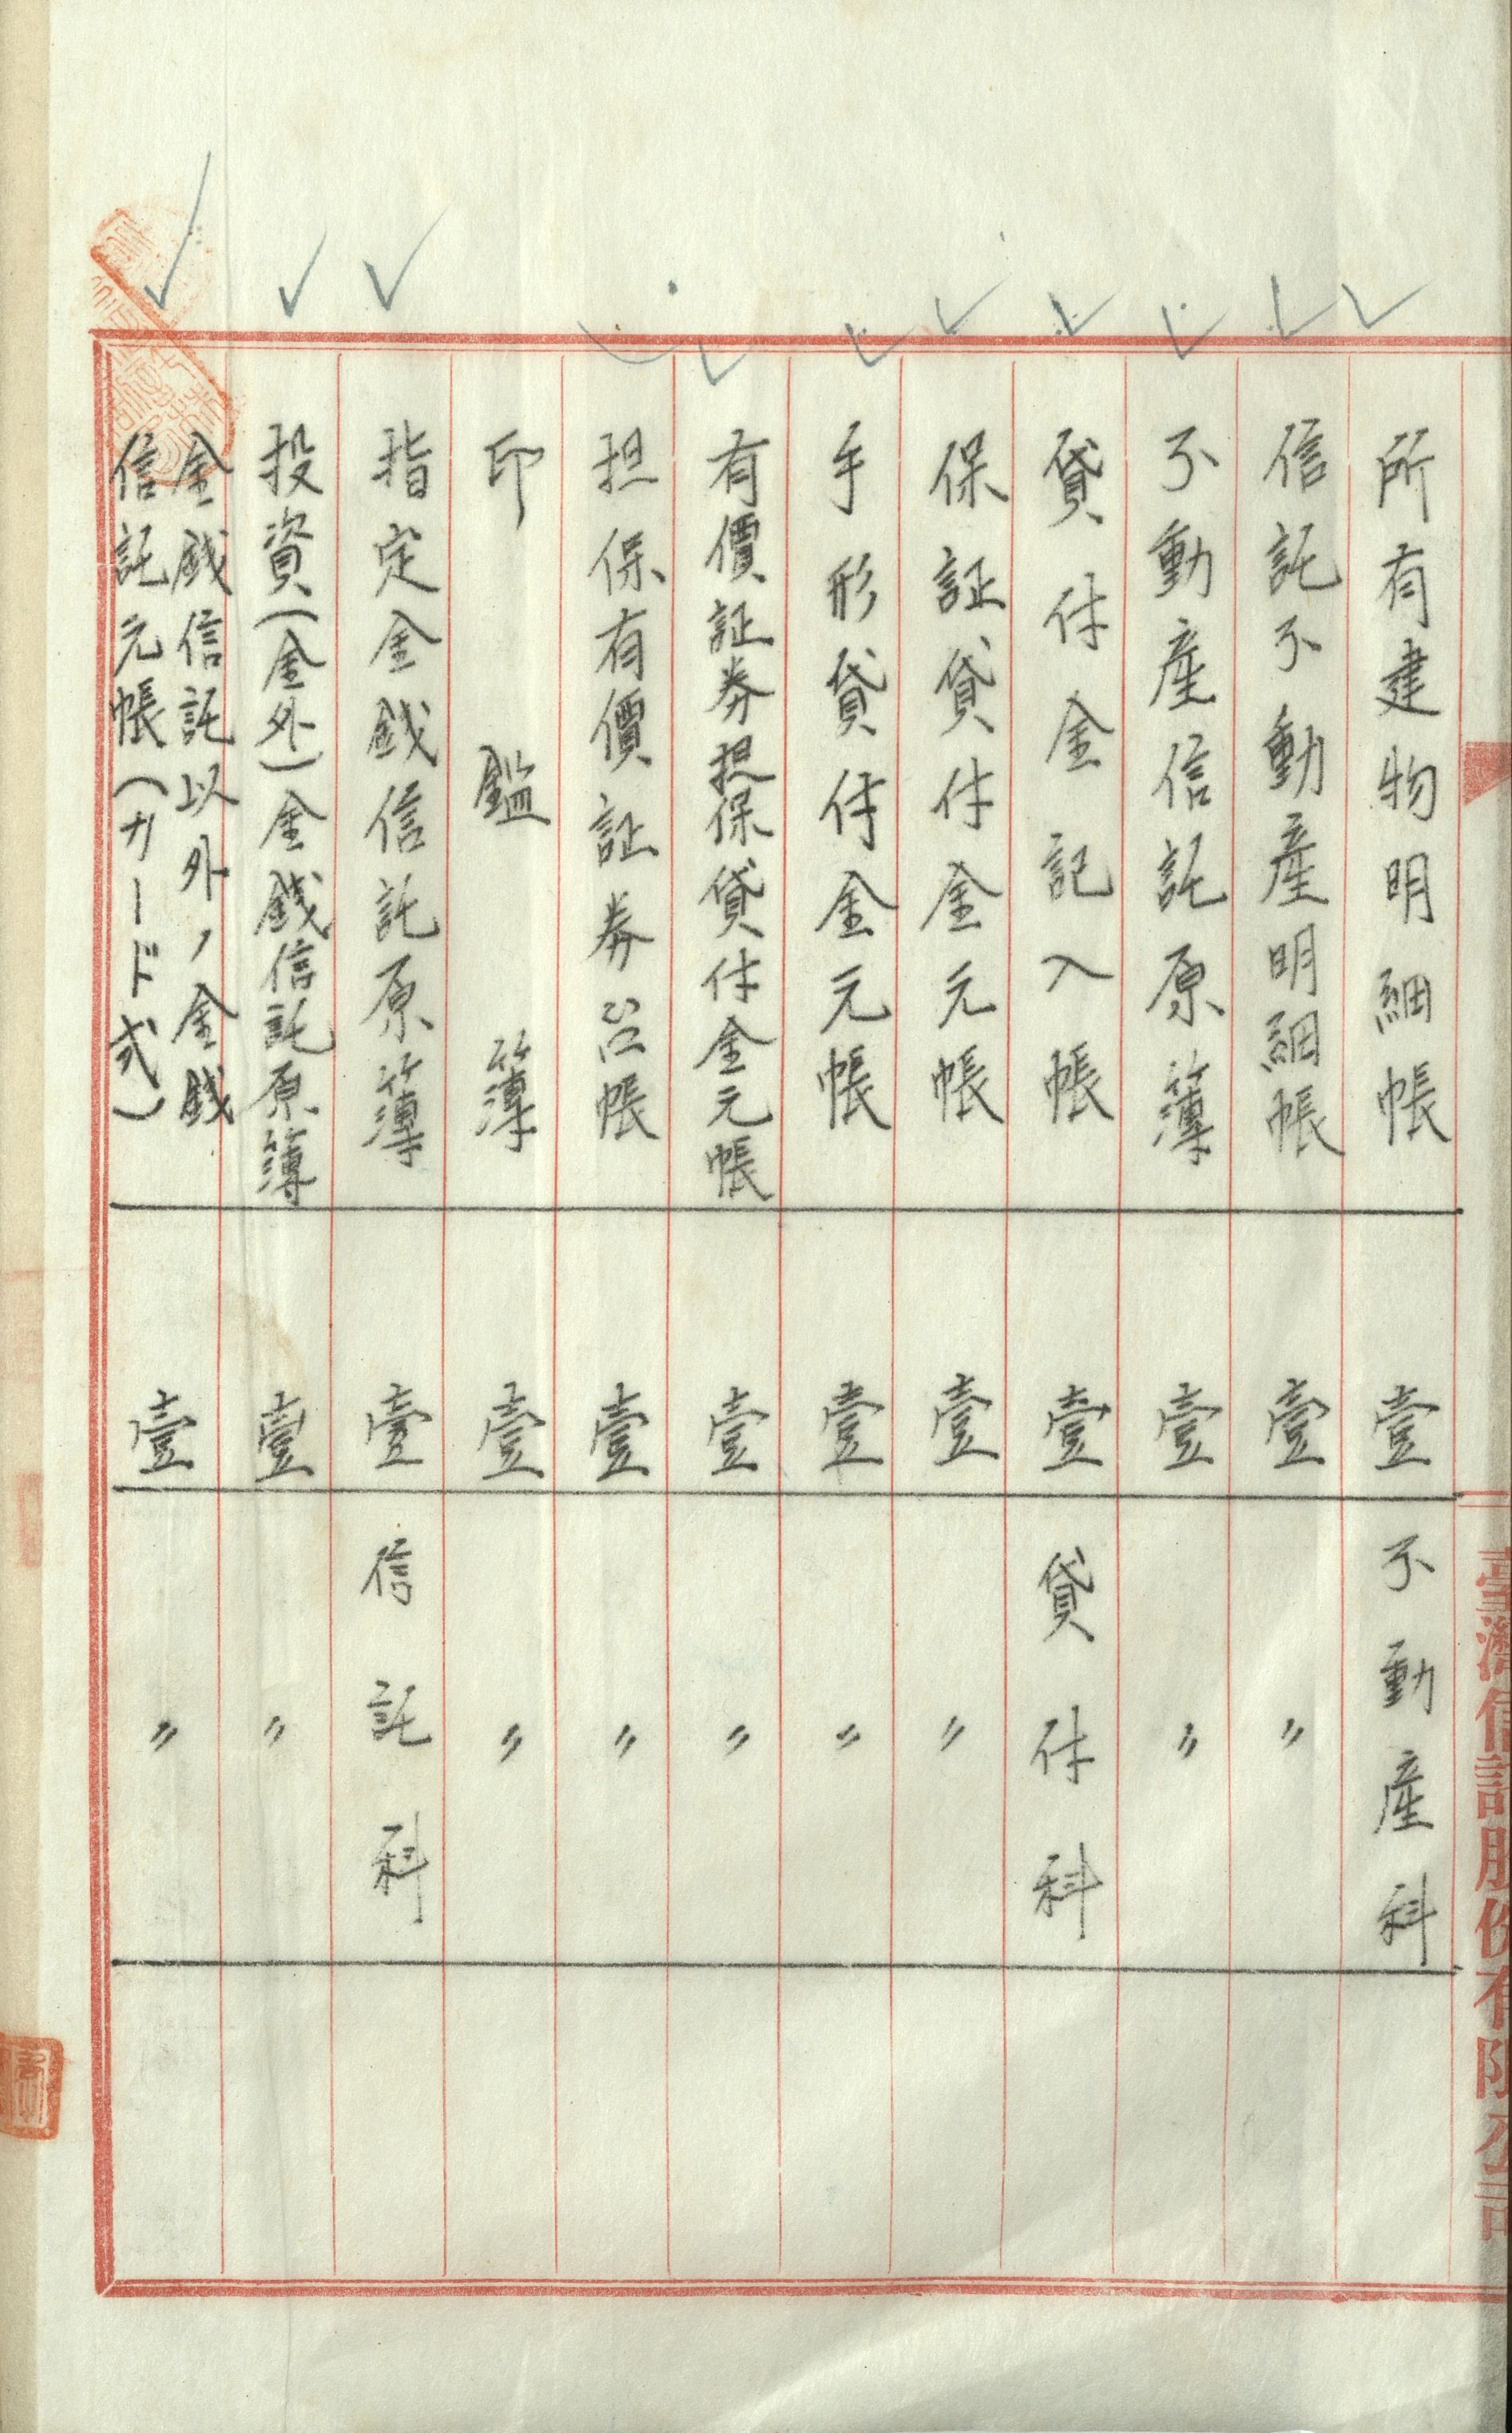 臺灣信託股份有限公司
所有建物明細帳 壹 不動產科
信託不動產明細帳 壹 〃
不動產信託原簿 壹 〃
貸付金記入帳 壹 貸付科
保証貸付金元帳 壹 〃
手形貸付金元帳 壹 〃
有價証券担保貸付金元帳 壹 〃
担保有價証券記帳 壹 〃
印鑑簿 壹 〃
指定金銭信託原簿 壹 信託科
投資(金外)金銭信託原簿 壹 〃
金銭信託以外ノ金銭
信託元帳(カード式) 壹 〃